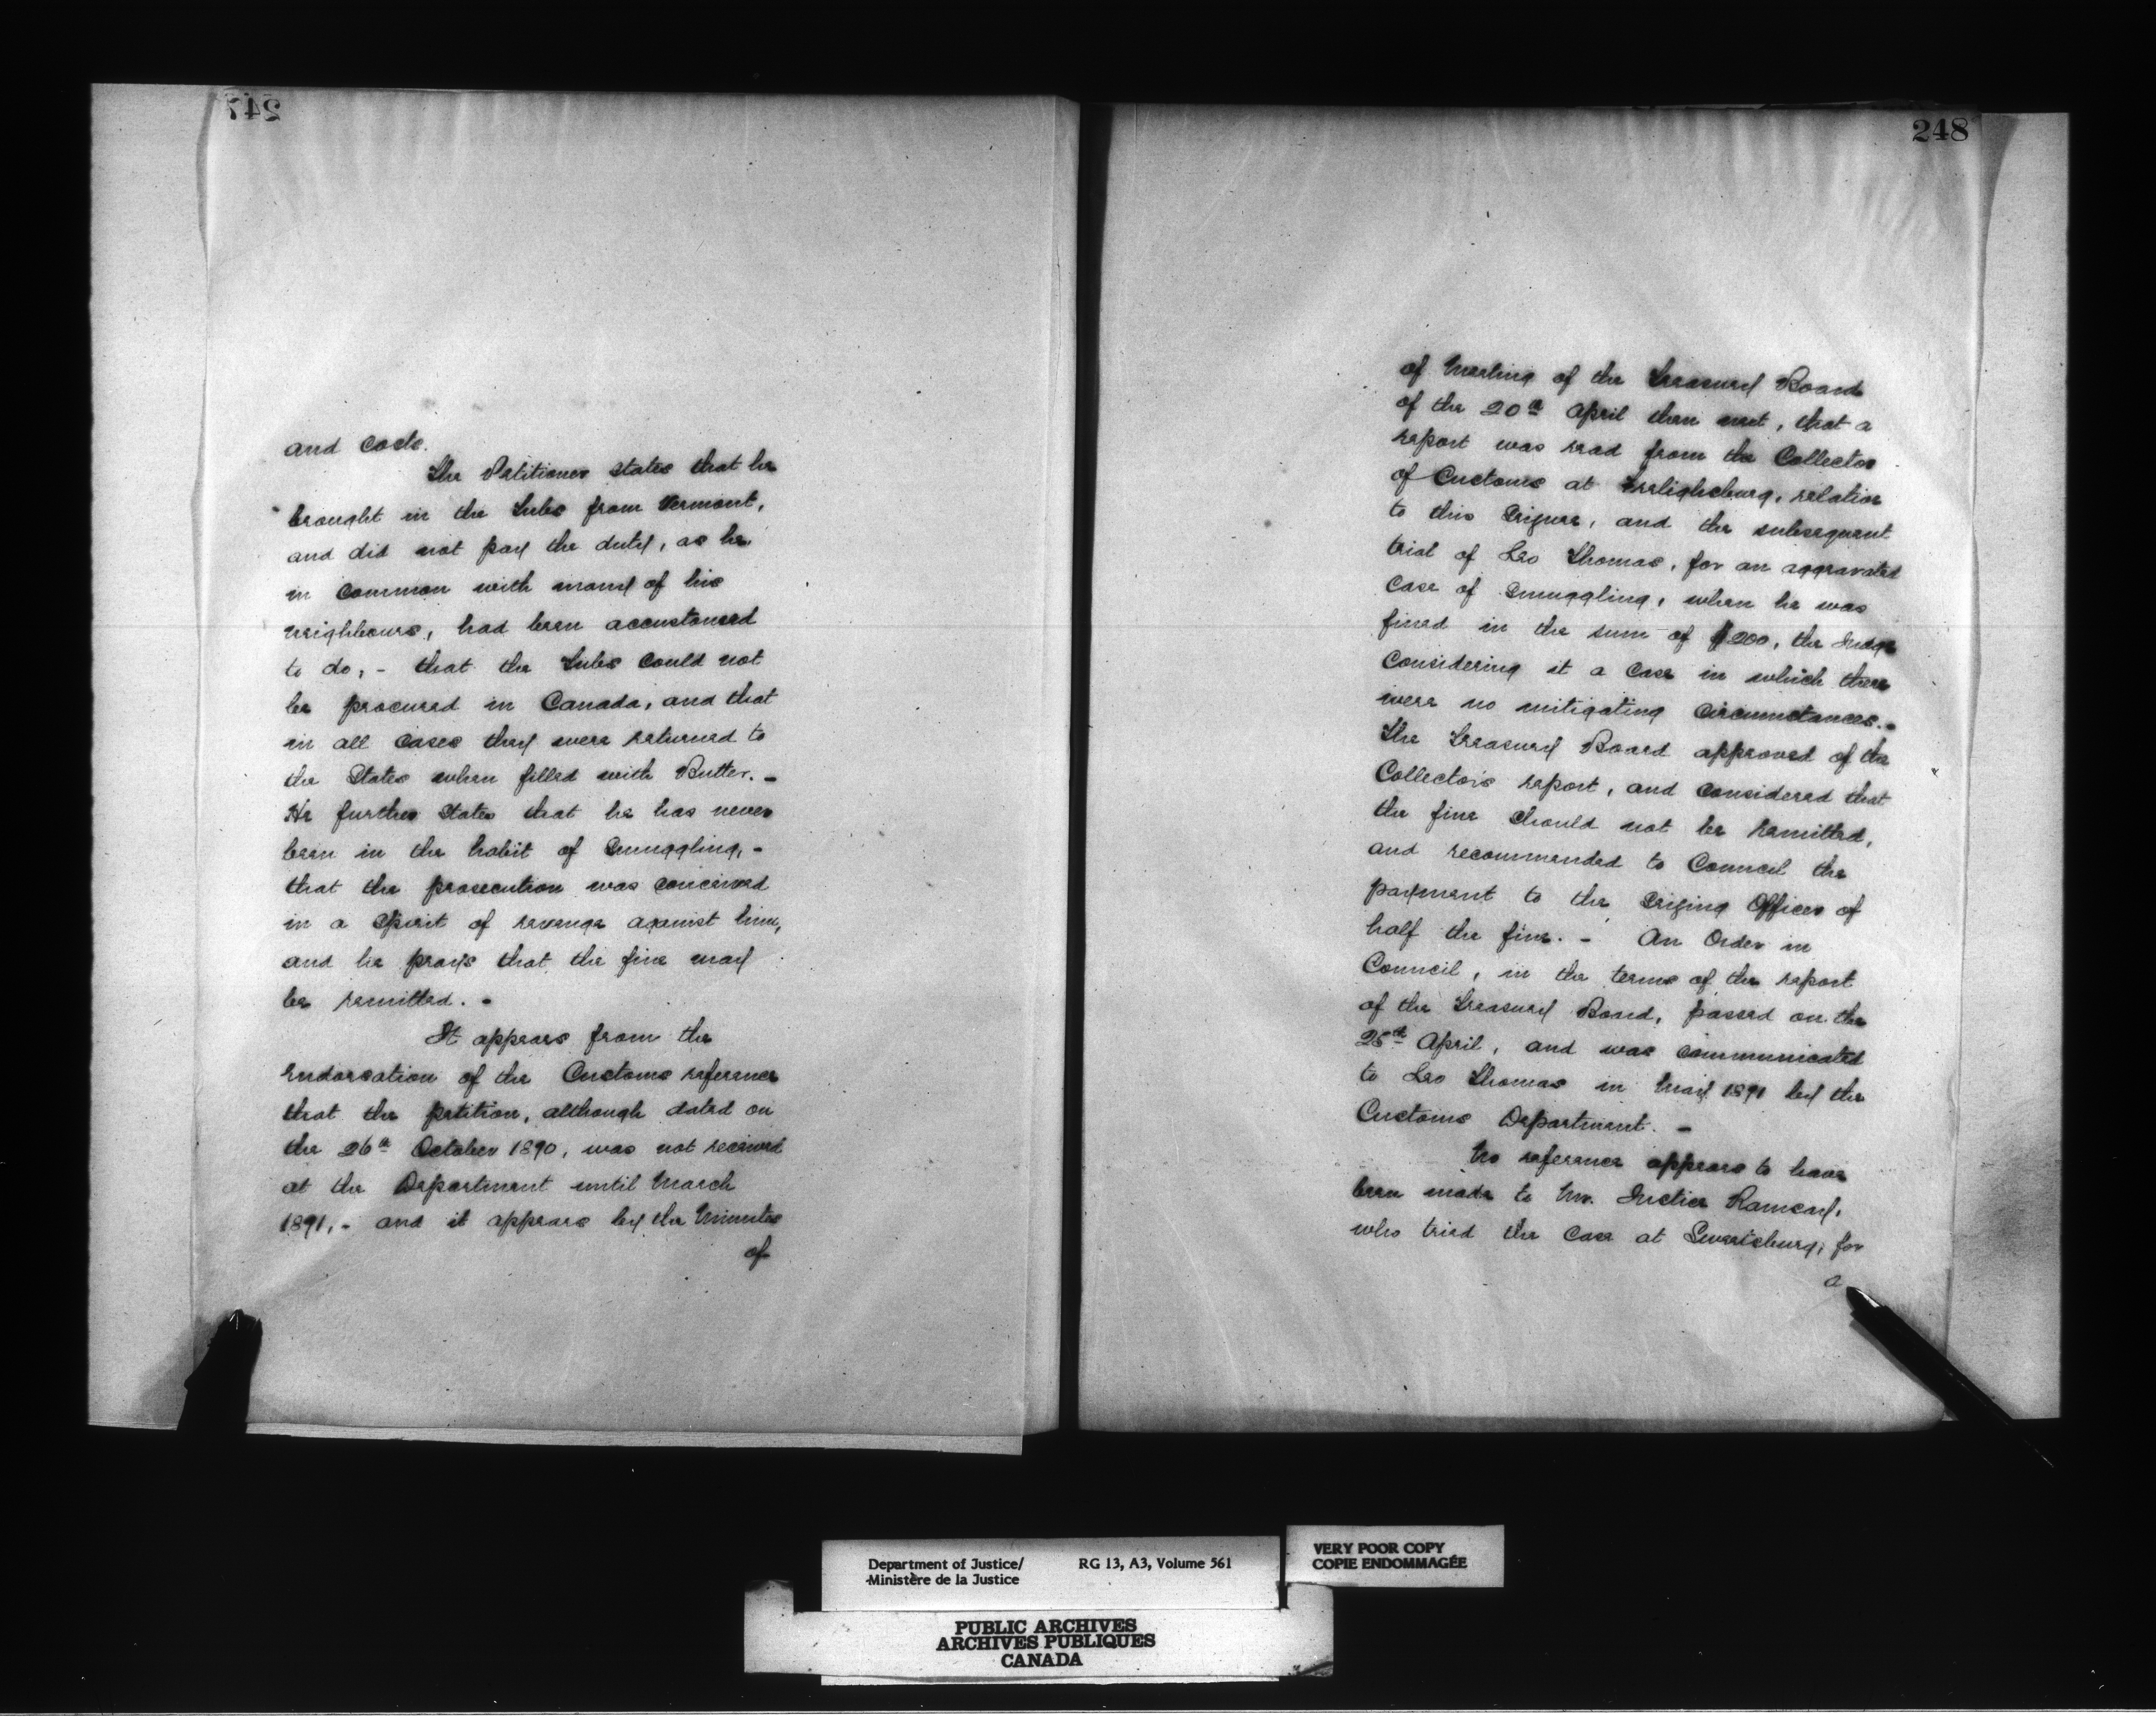 247
and costs.
The Petitioner states that he
brought in the Tubs from Vermont,
and did not pay the duty, as he,
in common with many of his
neighbours, had been accustomed
to do, - that the Tubs could not
be procured in Canada, and that
in all cases they were returned to
the States when filled with Butter. -
He further States that he has never
been in the habit of Smuggling, -
that the prosecution was conceived
in a Spirit of revenge against him,
and he prays that the fine may
be remitted. -
It appears from the
endorsation of the Customs reference
that the petition, although dated on
the 26th October 1890, was not received
at the Department until March
1891, - and it appears by the Minutes
of
248
of Meeting of the Treasury Board
of the 20th April then next, that a
report was read from the Collector
of Customs at Frelighsburg, relative
to this Seizure, and the subsequent
trial of Leo Thomas, for an aggravated
Case of Smuggling, when he was
fined in the sum of $200, the Judge
Considering it a Case in which there
were no mitigating Circumstances. -
The Treasury Board approved of the
Collector's report, and considered that
the fine should not be remitted,
and recommended to Council the
payment to the Seizing Officer of
half the fine. - An Order in
Council, in the terms of the report
of the Treasury Board, passed on the
25th April, and was communicated
to Leo Thomas in May 1891 by the
Customs Department. -
No reference appears to have
been made to Mr. Justice Ramsay,
who tried the Case at Sweetsburg, for
a
Department of Justice/
Ministère de la Justice
RG 13, A3, Volume 561
VERY POOR COPY
COPIE ENDOMMAGÉE
PUBLIC ARCHIVES
ARCHIVES PUBLIQUES
CANADA